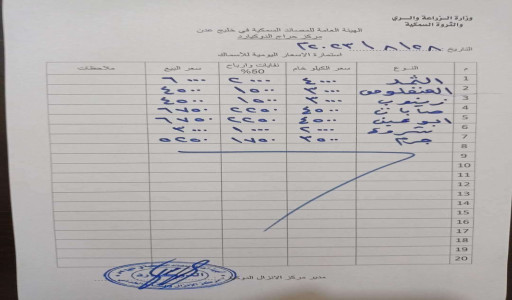 وزارة الزراعة والري
والثروة السمكية
الهيئة العامة للمصائد السمكية في خليج عدن
مركز حراج الدوكيارد
التاريخ ٢٨ / ٨ / ٢٠٢٣
استمارة الأسعار اليومية للأسماك
م النوع سعر الكيلو خام نفايات وارباح 50% سعر البيع ملاحظات
1 الثمد ٤٠٠٠ ٢٠٠٠ ٦٠٠٠
2 ٣٠٠٠ ١٥٠٠ ٤٥٠٠
3 زينوب ٣٠٠٠ ١٥٠٠ ٤٥٠٠
4 ٤٥٠٠ ٢٢٥٠ ٦٧٥٠
5 ابو عين ٤٥٠٠ ٢٢٥٠ ٦٧٥٠
6 شروة ٢٠٠٠ ١٠٠٠ ٣٠٠٠
7 جرم ٣٥٠٠ ١٧٥٠ ٥٢٥٠
8
9
10
11
12
13
14
15
16
17
18
19
20
مدير مركز الانزال